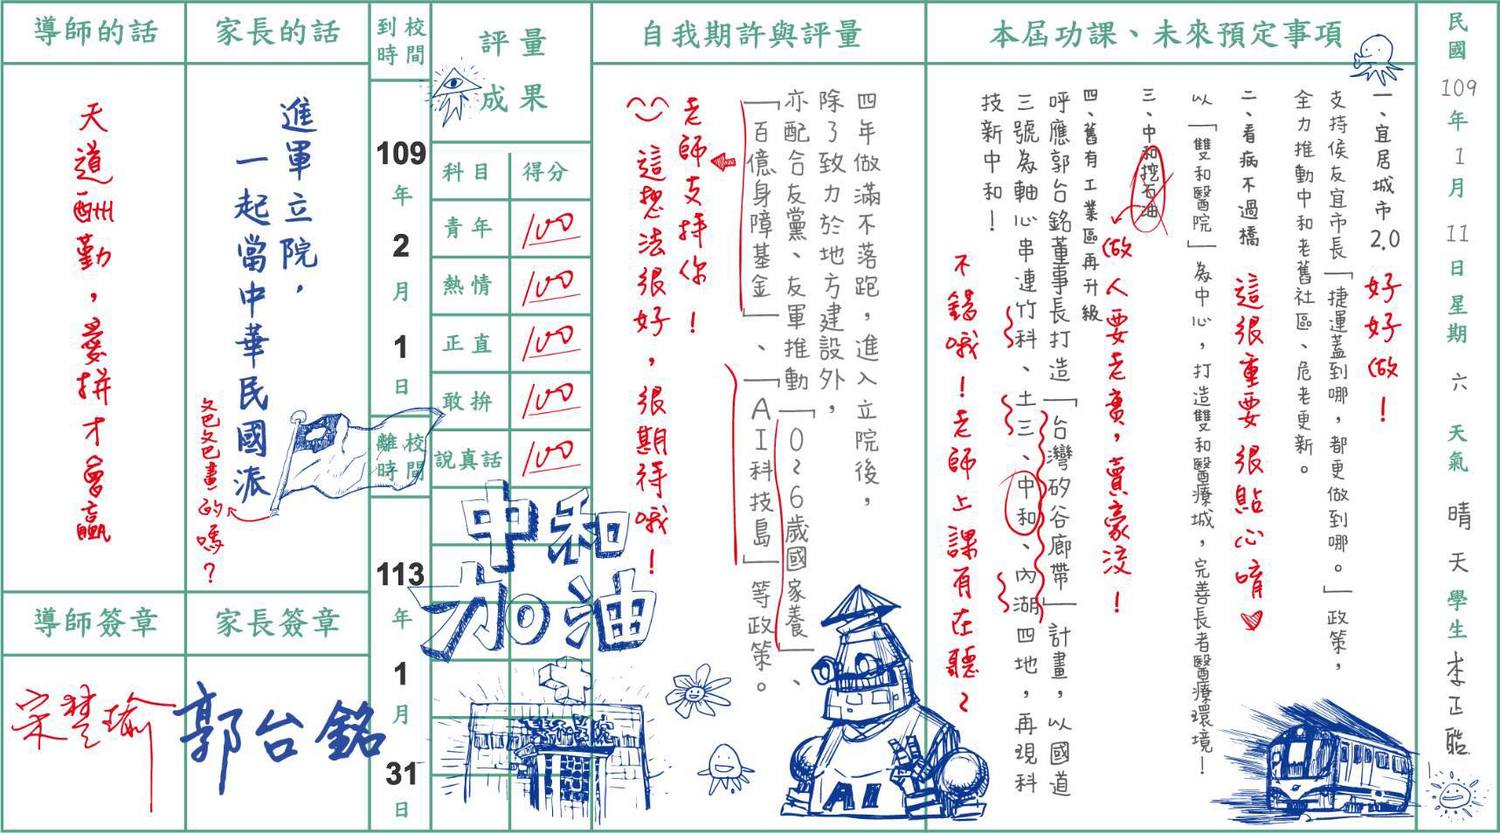 民國109年1月11日星期六 天氣 晴天 學生 李正皓
本屆功課、未來預定事項
一、宜居城市2.0
好好做！
支持侯友宜市長「捷運蓋到哪，都更做到哪。」政策，
全力推動中和老舊社區、危老更新。
二、看病不過橋
這很重要 很貼心唷
以「雙和醫院」為中心，打造雙和醫療城，完善長者醫療環境！
三、中和挖石油
做人要老實，賣豪洨！
四、舊有工業區再升級
呼應郭台銘董事長打造「台灣矽谷廊帶」計畫，以國道
三號為軸心串連竹科、土三、中和、內湖四地，再現科
技新中和！
不錯哦！老師上課有在聽~
自我期許與評量
四年做滿不落跑，進入立院後，
除了致力於地方建設外，
亦配合友黨、友軍推動「026歲國家養」、
「百億身障基金」、「AI科技島」等政策。
老師支持你！
這想法很好，很期待哦！
AI
評量成果
科目 得分
青年 100
熱情 100
正直 100
敢拚 100
說真話 100
中和
加油
雙和醫院
到校時間
109年2月1日
離校時間
113年1月31日
家長的話
進軍立院，
一起當中華民國派
爻巴爻巴畫的嗎？
家長簽章
郭台銘
導師的話
天道酬勤，愛拼才會贏
導師簽章
宋楚瑜